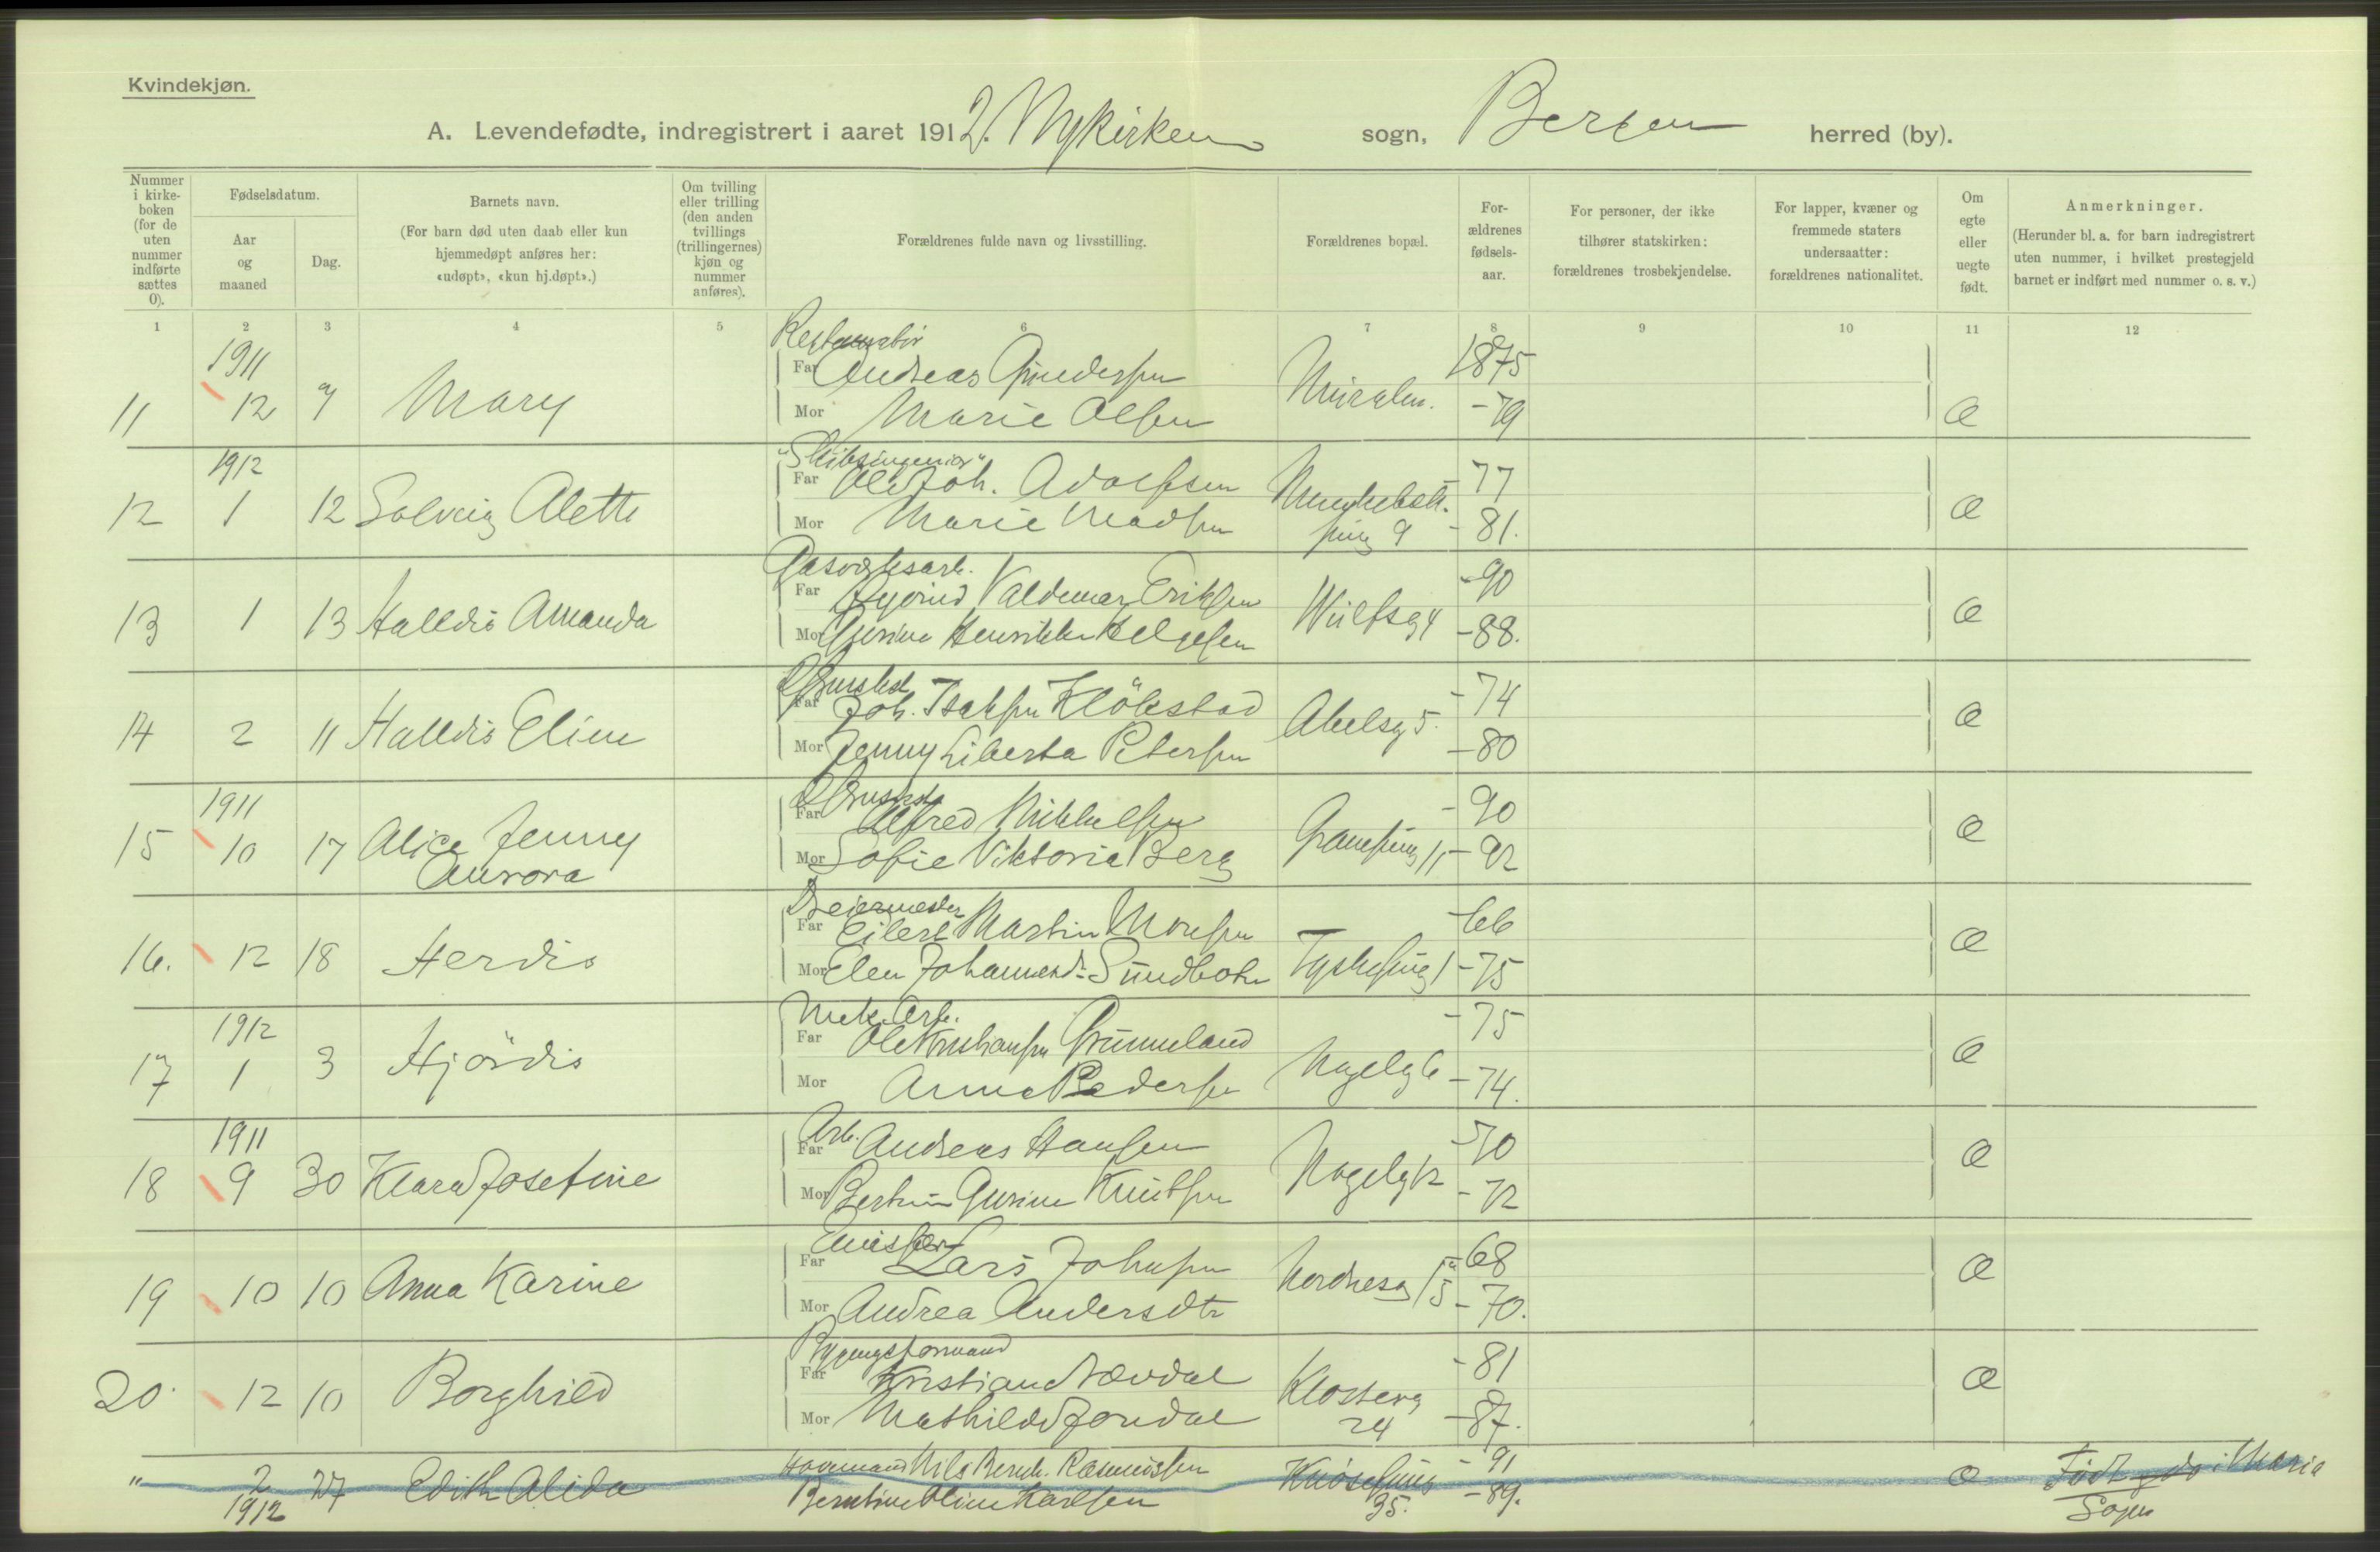 Kvindekjøn.
A. Levendefødte, indregistrert i aaret 1912. Nykirken sogn, Bergen herred (by).
Nummer i kirkeboken (for de uten nummer indførte sættes 0).
Fødselsdatum.
Aar og maaned
Dag.
Barnets navn.
(For barn død uten daab eller kun hjemmedøpt anføres her: «udøpt», «kun hj.døpt».)
Om tvilling eller trilling (den anden tvillings (trillingernes) kjøn og nummer anføres).
Forældrenes fulde navn og livsstilling.
Forældrenes bopæl.
Forældrenes fødselsaar.
For personer, der ikke tilhører statskirken: forældrenes trosbekjendelse.
For lapper, kvæner og fremmede staters undersaatter: forældrenes nationalitet.
Om egte eller uegte født.
Anmerkninger.
(Herunder bl. a. for barn indregistrert uten nummer, i hvilket prestegjeld barnet er indført med nummer o. s. v.)
1 2 3 4 5 6 7 8 9 10 11 12
1911 Restauratør
Far Andreas Gundersen 1875
11 12 7 Mary Muralm.
Mor Marie Olsen -79 Æ
1912 "Skibsingeniør"
Far Ole Joh. Adolfsen -77
12 1 12 Solveig Alette
Mor Marie Madsen 9 -81. Æ
Gasverksarb.
Far Øyvind Valdemar Eriksen -90
13 1 13 Halldis Amanda
Mor Gurine Henrikke Helgesen -88. Æ
Far Joh. Isaksen Klökstad -74
14 2 11 Halldis Eline 5.
Mor Jenny Liberta Petersen -80 Æ
1911
Far Alfred Mikkelsen -90
15 10 17 Alice Jenny Aurora 11
Mor Sofie Viktoria Berg -92 Æ
Dreiermester
Far Eilert Martin Monsen -66
16. 12 18 Herdis 1
Mor Elen Johannesdr. Sundbotn -75 Æ
1912 Mek. Arb.
Far Ole Kristiansen -75
17 1 3 Hjördis Nagelg 6
Mor Anna Pedersen -74. Æ
1911 Arb.
Far Andreas Hansen -70
18 9 30 Klara Josefine Nagelg 12
Mor Gurine Knutsen -72 Æ
Emissær
Far Lars Johnsen -68
19 10 10 Anna Karine Nordnesg
Mor Andrea Andersdtr -70. Æ
Bygningsformand
Far Kristian Nævdal -81
20. 12 10 Borghild Klosterg 24
Mor Mathilde Jondal -87. Æ
" 2 1912 27 Edith Alida Nils Bernh. Rasmussen -91
Berntine Oline Karlsen 35. -89. Æ
Født i Maria Sogn